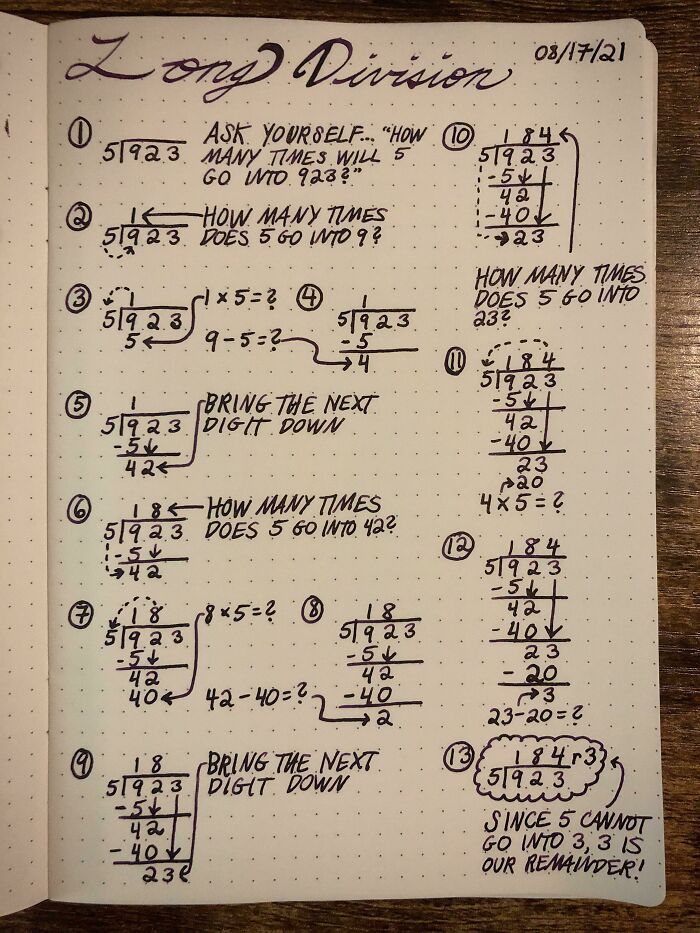 Long Division
08/17/21
1
5 923
ASK YOURSELF... "HOW
MANY TIMES WILL 5
GO INTO 923?"
2
1
5 923
HOW MANY TIMES
DOES 5 GO INTO 9?
3
1
5 923
5
1 × 5 = ?
9 - 5 = ?
4
1
5 923
- 5
4
5
1
5 923
- 5
42
BRING THE NEXT
DIGIT DOWN
6
18
5 923
- 5
42
HOW MANY TIMES
DOES 5 GO INTO 42?
7
18
5 923
- 5
42
40
8 × 5 = ?
42 - 40 = ?
8
18
5 923
- 5
42
- 40
2
9
18
5 923
- 5
42
- 40
23
BRING THE NEXT
DIGIT DOWN
10
184
5 923
- 5
42
- 40
23
HOW MANY TIMES
DOES 5 GO INTO
23?
11
184
5 923
- 5
42
- 40
23
20
4 × 5 = ?
12
184
5 923
- 5
42
- 40
23
- 20
3
23 - 20 = ?
13
184 r3
5 923
SINCE 5 CANNOT
GO INTO 3, 3 IS
OUR REMAINDER!